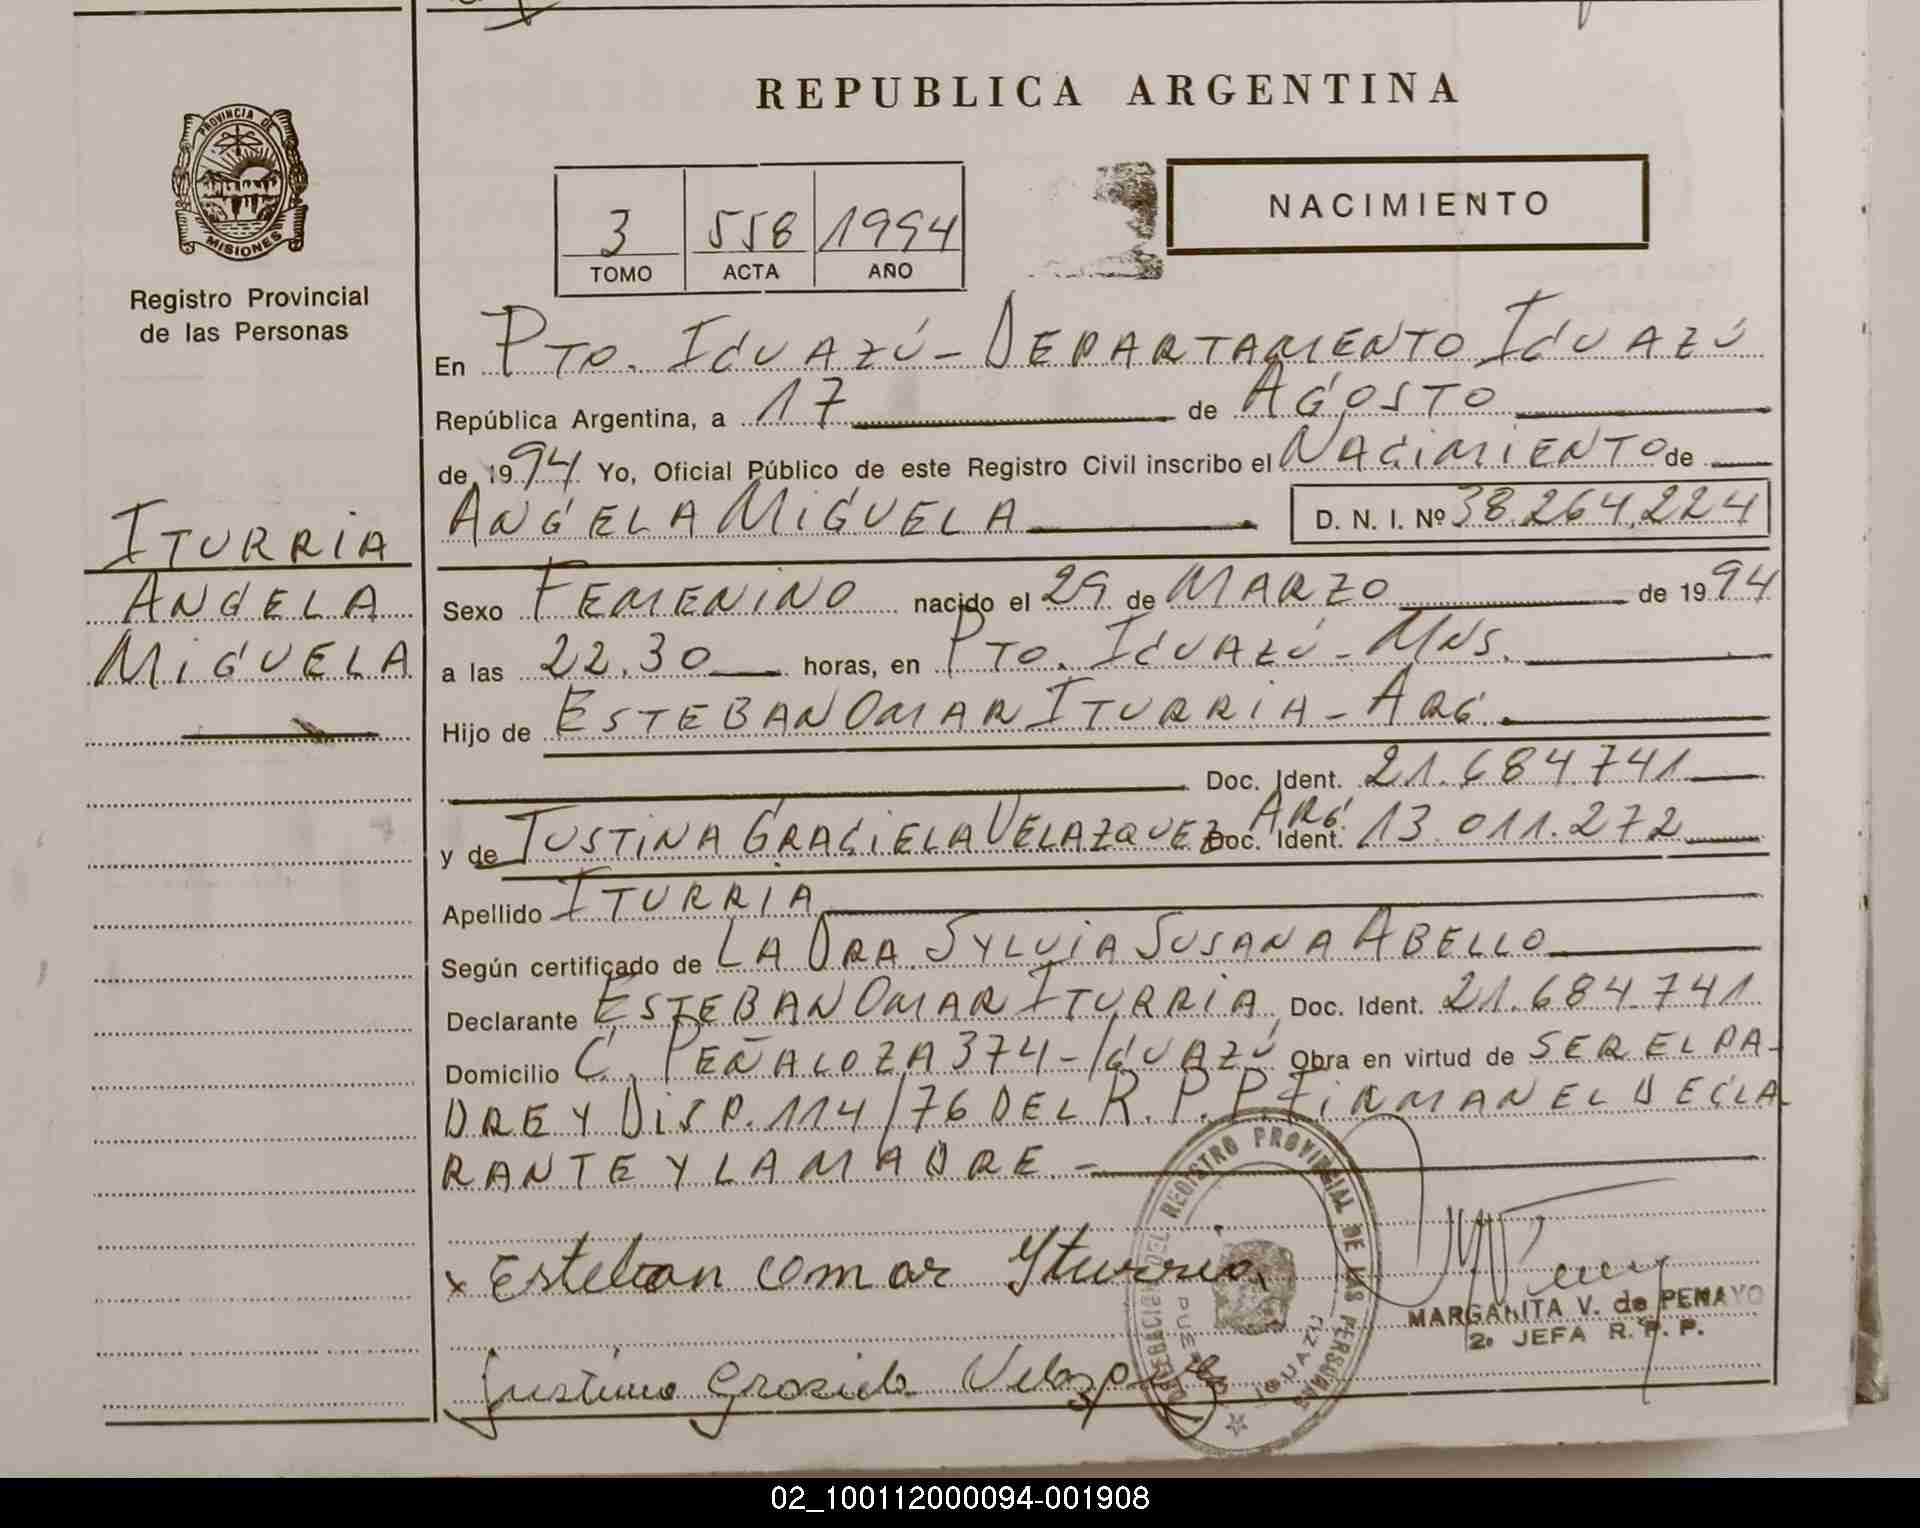 REPUBLICA ARGENTINA
PROVINCIA DE
MISIONES
Registro Provincial
de las Personas
3 558 1994
TOMO ACTA AÑO
NACIMIENTO
En Pto. IGUAZÚ - DEPARTAMENTO IGUAZÚ
República Argentina, a 17 de AGOSTO
de 1994 Yo, Oficial Público de este Registro Civil inscribo el NACIMIENTO de
ANGELA MIGUELA D. N. I. Nº 38.264.224
ITURRIA
ANGELA
MIGUELA
Sexo FEMENINO nacido el 29 de MARZO de 1994
a las 22.30 horas, en Pto. IGUAZÚ - MNS.
Hijo de ESTEBAN OMAR ITURRIA - ARG.
Doc. Ident. 21.684.741
y de JUSTINA GRACIELA VELAZQUEZ ARG. Doc. Ident. 13.011.272
Apellido ITURRIA
Según certificado de LA DRA. SYLVIA SUSANA ABELLO
Declarante ESTEBAN OMAR ITURRIA Doc. Ident. 21.684.741
Domicilio C. PEÑALOZA 374 - IGUAZÚ Obra en virtud de SER EL PA-
DRE Y DISP. 114/76 DEL R.P.P. FIRMAN EL DECLA-
RANTE Y LA MADRE -
x Esteban omar Yturria
Justina Graciela Velazquez
REGISTRO PROVINCIAL DE LAS PERSONAS
IGUAZU
MARGARITA V. de PENAYO
2º JEFA R. P. P.
02_100112000094-001908